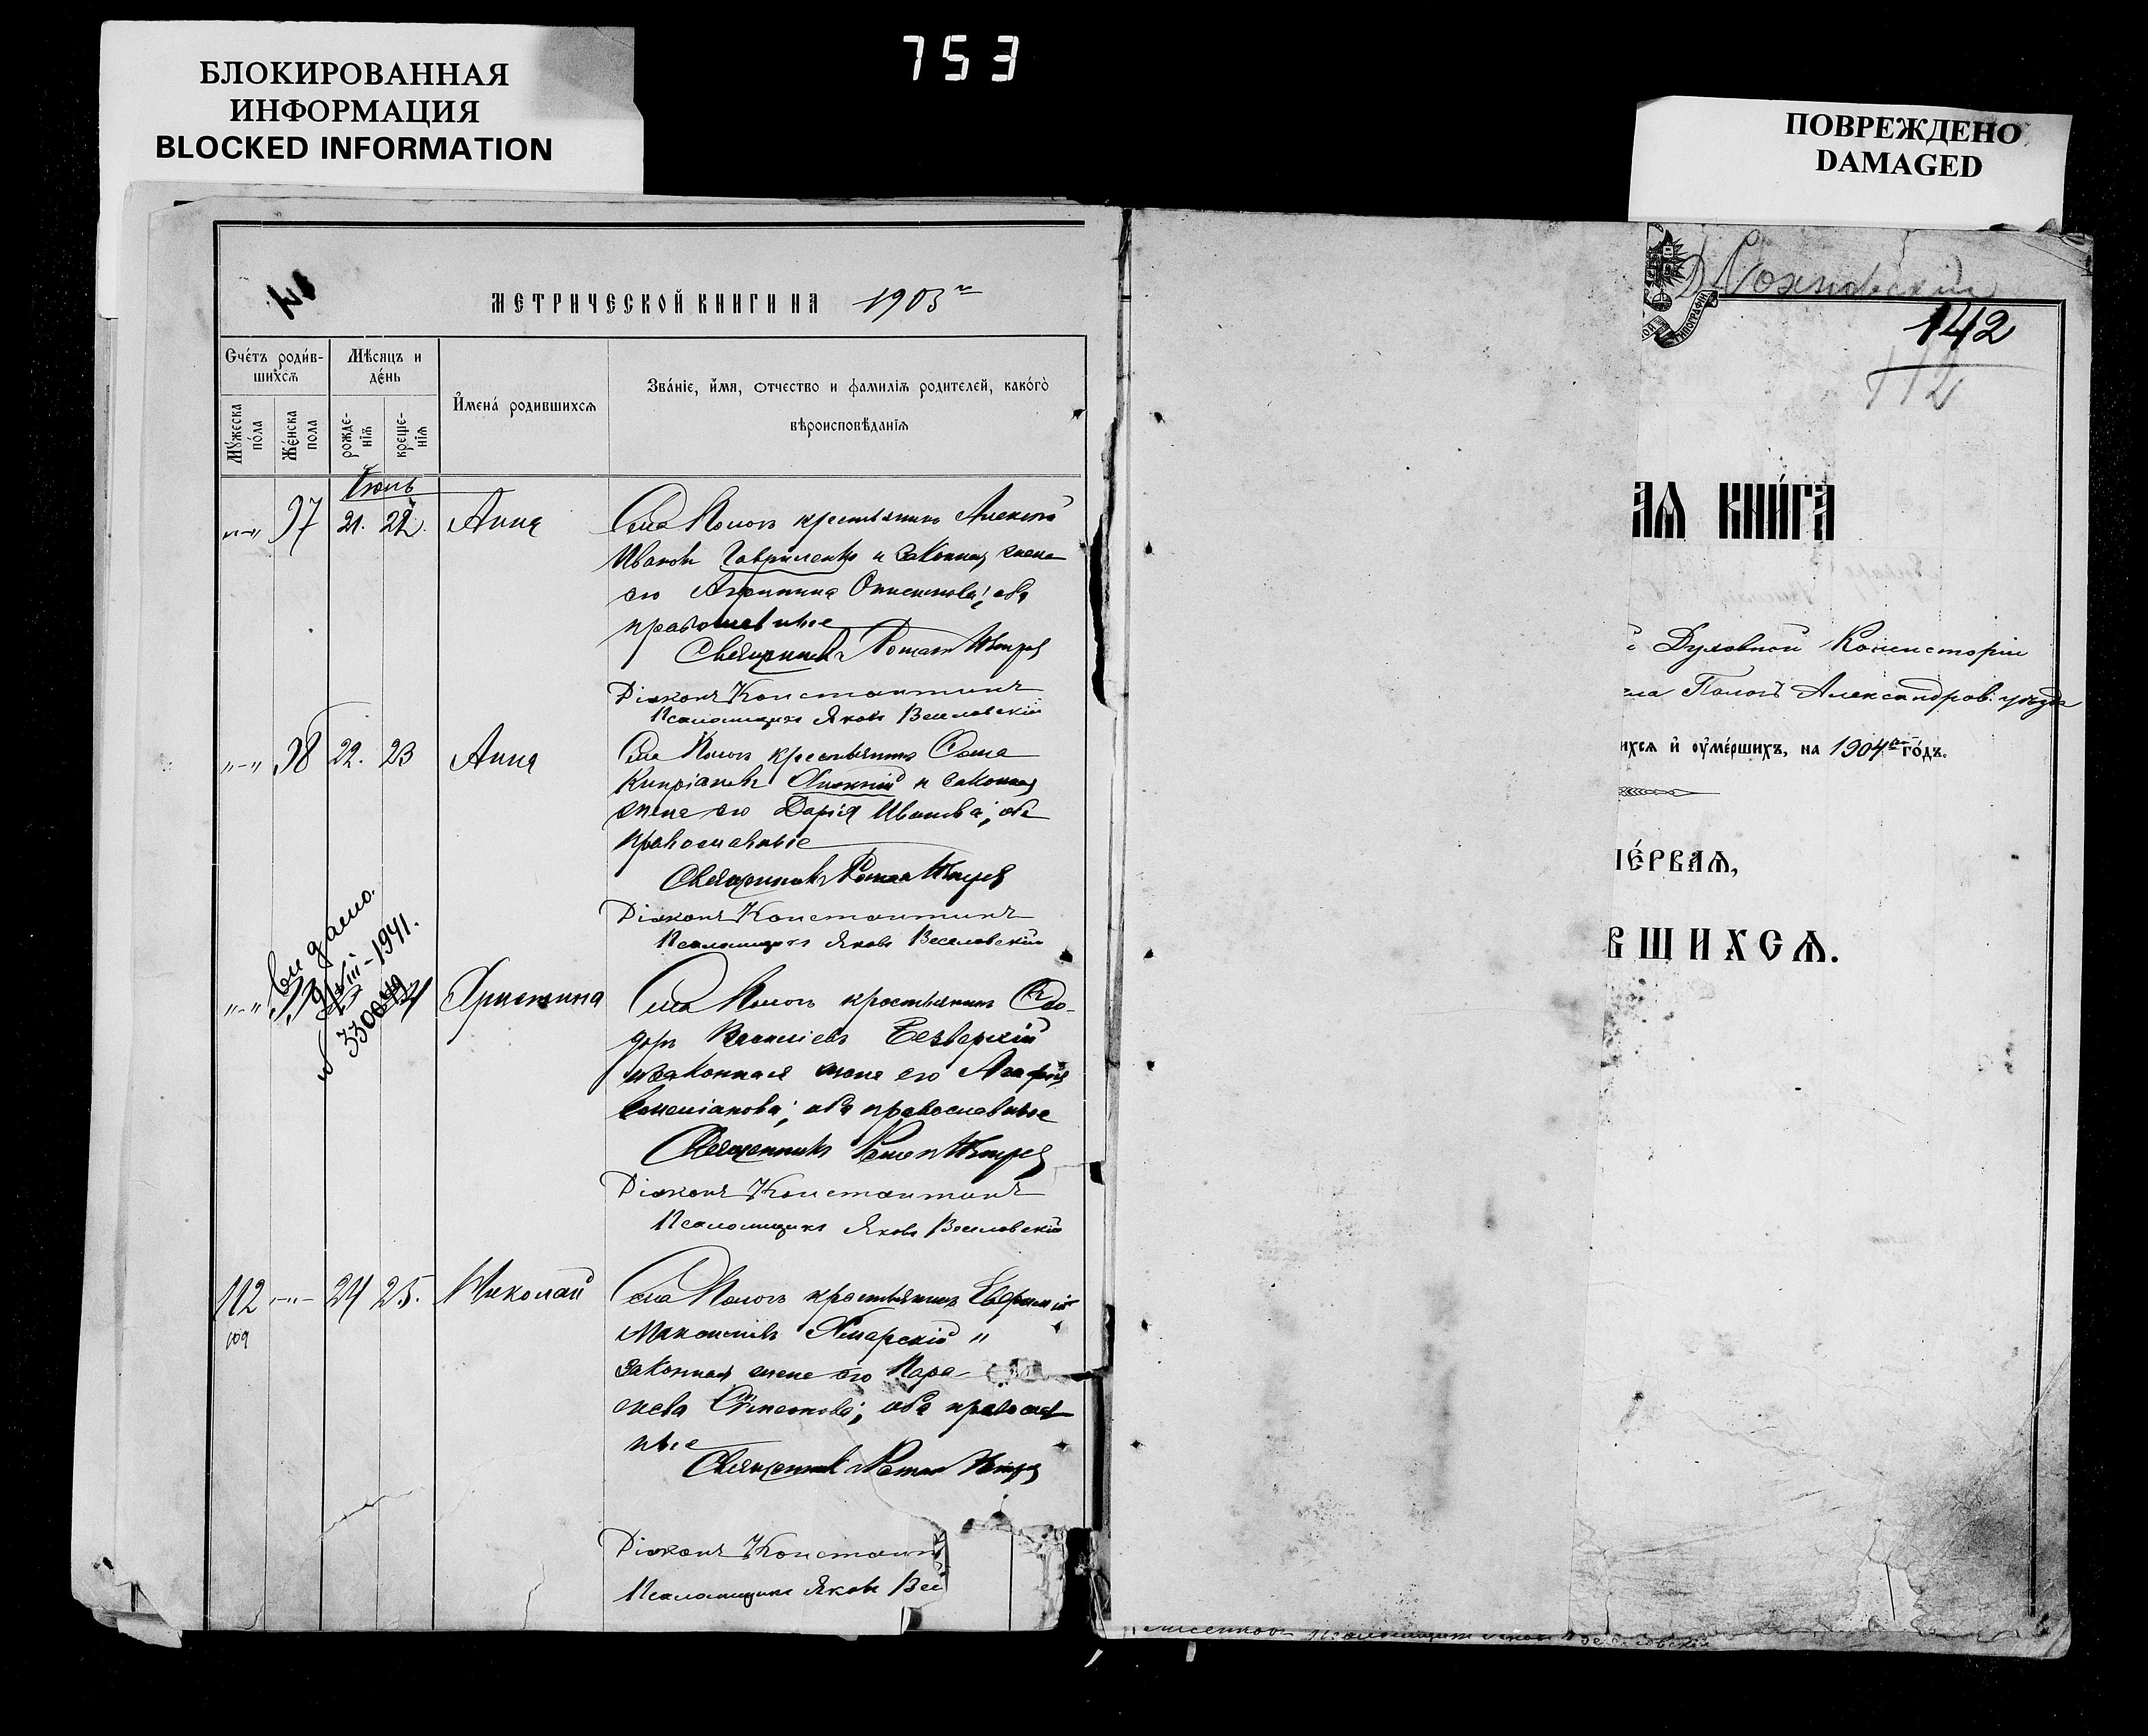 БЛОКИРОВАННАЯ
ИНФОРМАЦИЯ
BLOCKED INFORMATION
753
ПОВРЕЖДЕНО
DAMAGED
МЕТРИЧЕСКОЙ КНИГИ НА 1903
Счетъ родив-
шихсѧ
Мѣсяцъ и
день
Имена родившихсѧ
Званіе, имя, отчество и фамиліѧ родителей, какого
вѣроисповѣданіѧ
Мужеска
пола
Женска
пола
рожде-
ніѧ
креще-
ніѧ
Іюнь
„-„ 97 21. 22. Анна
Села Пологъ крестьянинъ Алексѣй
Ивановъ Гавриленко и законная жена
его Агрипина; оба
православные
Священникъ Романъ Петровъ
Діаконъ Константинъ
Псаломщикъ Яковъ Веселовскій
„-„ 98 22. 23 Анна
Села Пологъ крестьянинъ Сава
Кипріановъ и законная
жена его Дарія Иванова; оба
православные
Священникъ Романъ Петровъ
Діаконъ Константинъ
Псаломщикъ Яковъ Веселовскій
Видано.
VIII-1941.
„-„ Христина
Села Пологъ крестьянинъ Ѳео-
доръ Василіевъ Безверхій
и законная жена его Агафія
Емеліанова; оба православные
Священникъ Романъ Петровъ
Діаконъ Константинъ
Псаломщикъ Яковъ Веселовскій
112 -„- 24 25. Николай
109
Села Пологъ крестьянинъ Ефримій
Хмарскій и
законная жена его Пара-
скева Симеонова; оба православ
ные
Священникъ Романъ Петровъ
Діаконъ Константинъ
Псаломщикъ Яковъ Весе
142
112
АѦ КНИГА
Духовной Консисторіи
ела Пологъ Александров. уѣзда
ихсѧ и оумершихъ, на 1904й годъ.
ПЕРВАѦ,
ВШИХСѦ.
Псаломщикъ Яковъ Веселовскій